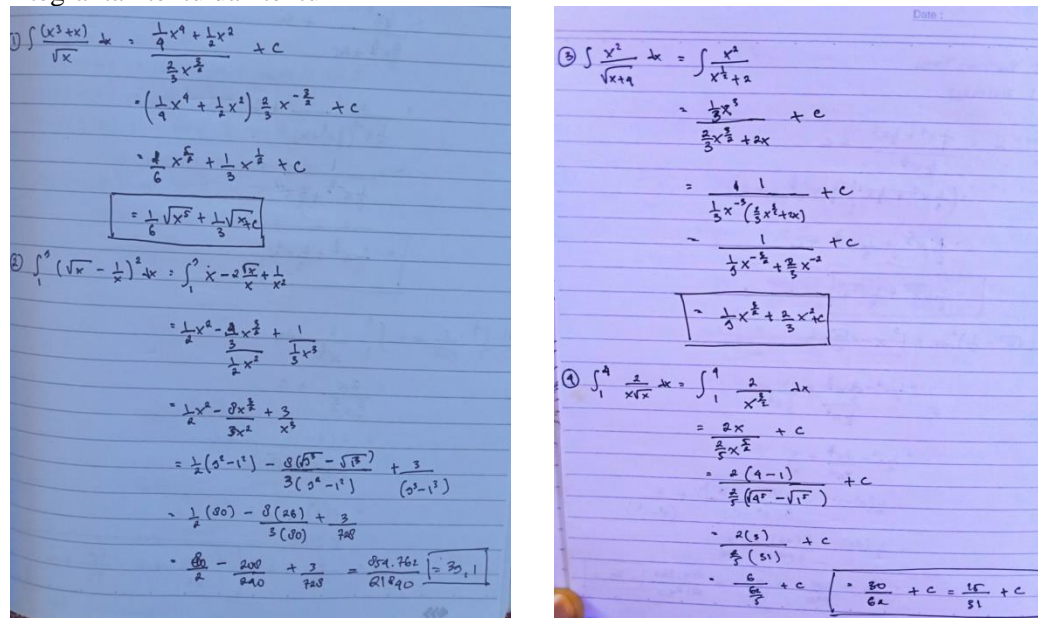 1) ∫ (x³+x)/√x dx = (1/4 x⁴ + 1/2 x²)/(2/3 x^(3/2)) + C
= (1/4 x⁴ + 1/2 x²) 2/3 x^(-3/2) + C
= 1/6 x^(5/2) + 1/3 x^(1/2) + C
= 1/6 √x⁵ + 1/3 √x + C
2) ∫₁⁹ (√x - 1/x)² dx = ∫₁⁹ x - 2√x/x + 1/x²
= 1/2 x² - (4/3 x^(3/2))/(1/2 x²) + 1/(1/3 x³)
= 1/2 x² - 8x^(3/2)/3x² + 3/x³
= 1/2 (9²-1²) - 8(√9³ - √1³)/3(9²-1²) + 3/(9³-1³)
= 1/2 (80) - 8(26)/3(80) + 3/728
= 80/2 - 208/240 + 3/728 = 854.762/21840 = 39,1
Date :
3) ∫ x²/√x+4 dx = ∫ x²/(x^(1/2)+2)
= (1/3 x³)/(2/3 x^(3/2) + 2x) + C
= 1/(1/3 x⁻³ (2/3 x^(3/2) + 2x)) + C
= 1/(1/3 x^(-3/2) + 2/3 x⁻²) + C
= 1/3 x^(3/2) + 2/3 x² + C
4) ∫₁⁴ 2/x√x dx = ∫₁⁴ 2/x^(3/2) dx
= 2x/(2/5 x^(5/2)) + C
= 2(4-1)/(2/5 (√4⁵ - √1⁵)) + C
= 2(3)/(2/5 (31)) + C
= 6/(62/5) + C = 30/62 + C = 15/31 + C